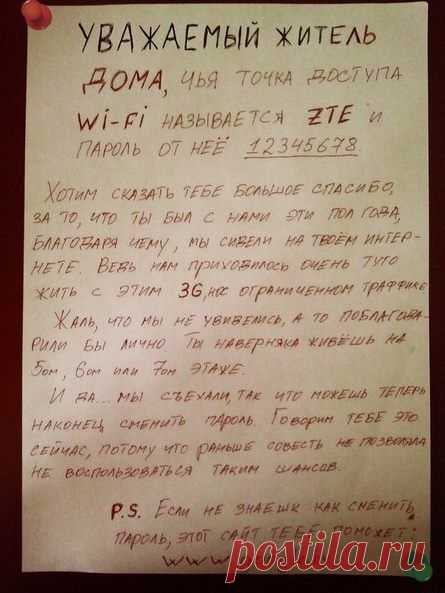 УВАЖАЕМЫЙ ЖИТЕЛЬ
ДОМА, ЧЬЯ ТОЧКА ДОСТУПА
Wi-Fi НАЗЫВАЕТСЯ ZTE И
ПАРОЛЬ ОТ НЕЁ 12345678.
ХОТИМ СКАЗАТЬ ТЕБЕ БОЛЬШОЕ СПАСИБО,
ЗА ТО, ЧТО ТЫ БЫЛ С НАМИ ЭТИ ПОЛ ГОДА,
БЛАГОДАРЯ ЧЕМУ, МЫ СИДЕЛИ НА ТВОЁМ ИНТЕР-
НЕТЕ. ВЕДЬ НАМ ПРИХОДИЛОСЬ ОЧЕНЬ ТУГО
ЖИТЬ С ЭТИМ 3G, ОГРАНИЧЕННОМ ТРАФФИКЕ
ЖАЛЬ, ЧТО МЫ НЕ УВИДЕЛИСЬ, А ТО ПОБЛАГОДА-
РИЛИ БЫ ЛИЧНО ТЫ НАВЕРНЯКА ЖИВЁШЬ НА
5ОМ, 6ОМ ИЛИ 7ОМ ЭТАЖЕ.
И ДА... МЫ СЪЕХАЛИ, ТАК ЧТО МОЖЕШЬ ТЕПЕРЬ
НАКОНЕЦ СМЕНИТЬ ПАРОЛЬ. ГОВОРИМ ТЕБЕ ЭТО
СЕЙЧАС, ПОТОМУ ЧТО РАНЬШЕ СОВЕСТЬ НЕ ПОЗВОЛЯЛА
НЕ ВОСПОЛЬЗОВАТЬСЯ ТАКИМ ШАНСОМ.
P.S. ЕСЛИ НЕ ЗНАЕШЬ КАК СМЕНИТЬ
ПАРОЛЬ, ЭТОТ САЙТ ТЕБЕ ПОМОЖЕТ:
www
postila.ru